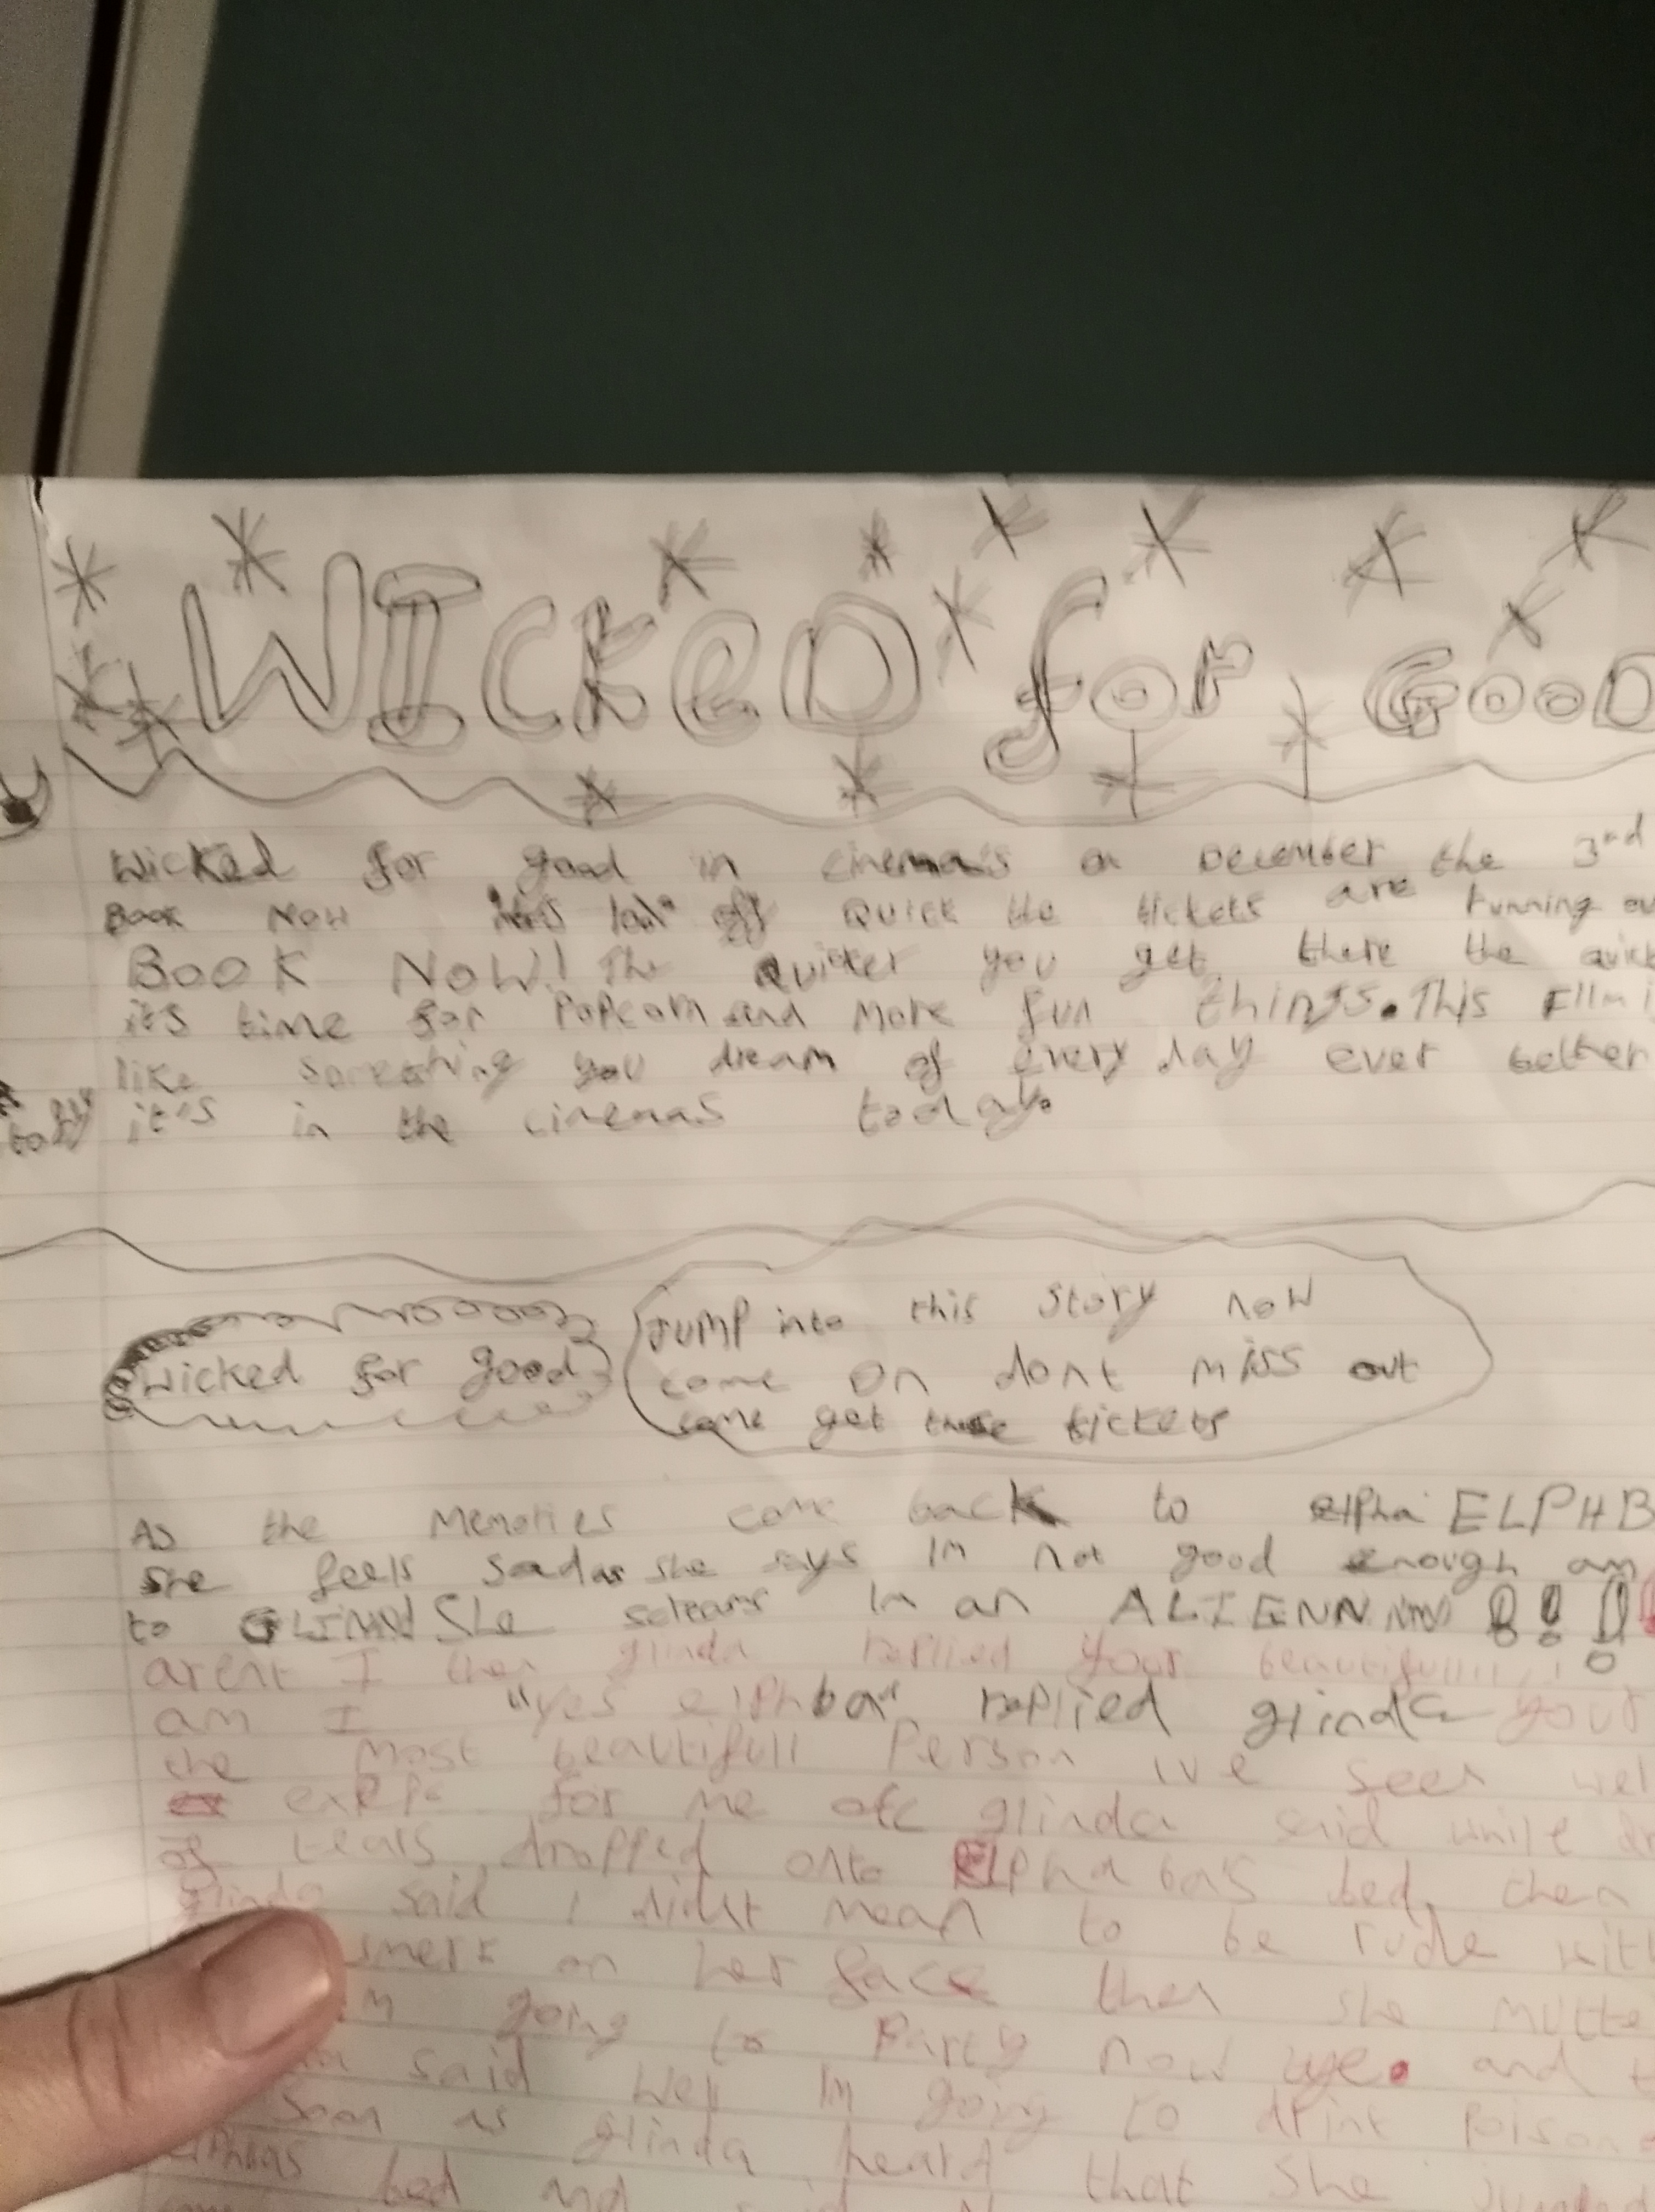 WICKED for GOOD
Wicked for good in cinema's on December the 3rd
Book Now quick the tickets are running
BOOK NOW! The Quicker you get there the
it's time for Popcorn and More fun things. This
like something you dream of every day ever better
it's in the cinemas today.
wicked for good
Jump into this story now
come on dont miss out
come get these tickets
As the Memories come back to elpha ELPHB
she feels sad as she says Im not good enough
to She screams Im an
arent I then glinda replied your
am I "yes replied glinda your
the most beautifull Person ive seen
for me ofc glinda said while
of tears dropped onto bed, then
glinda said I didnt mean to be rude
smerk on her face then she
going to Party now and
said well Im going to drink
soon as glinda heard that she
bed